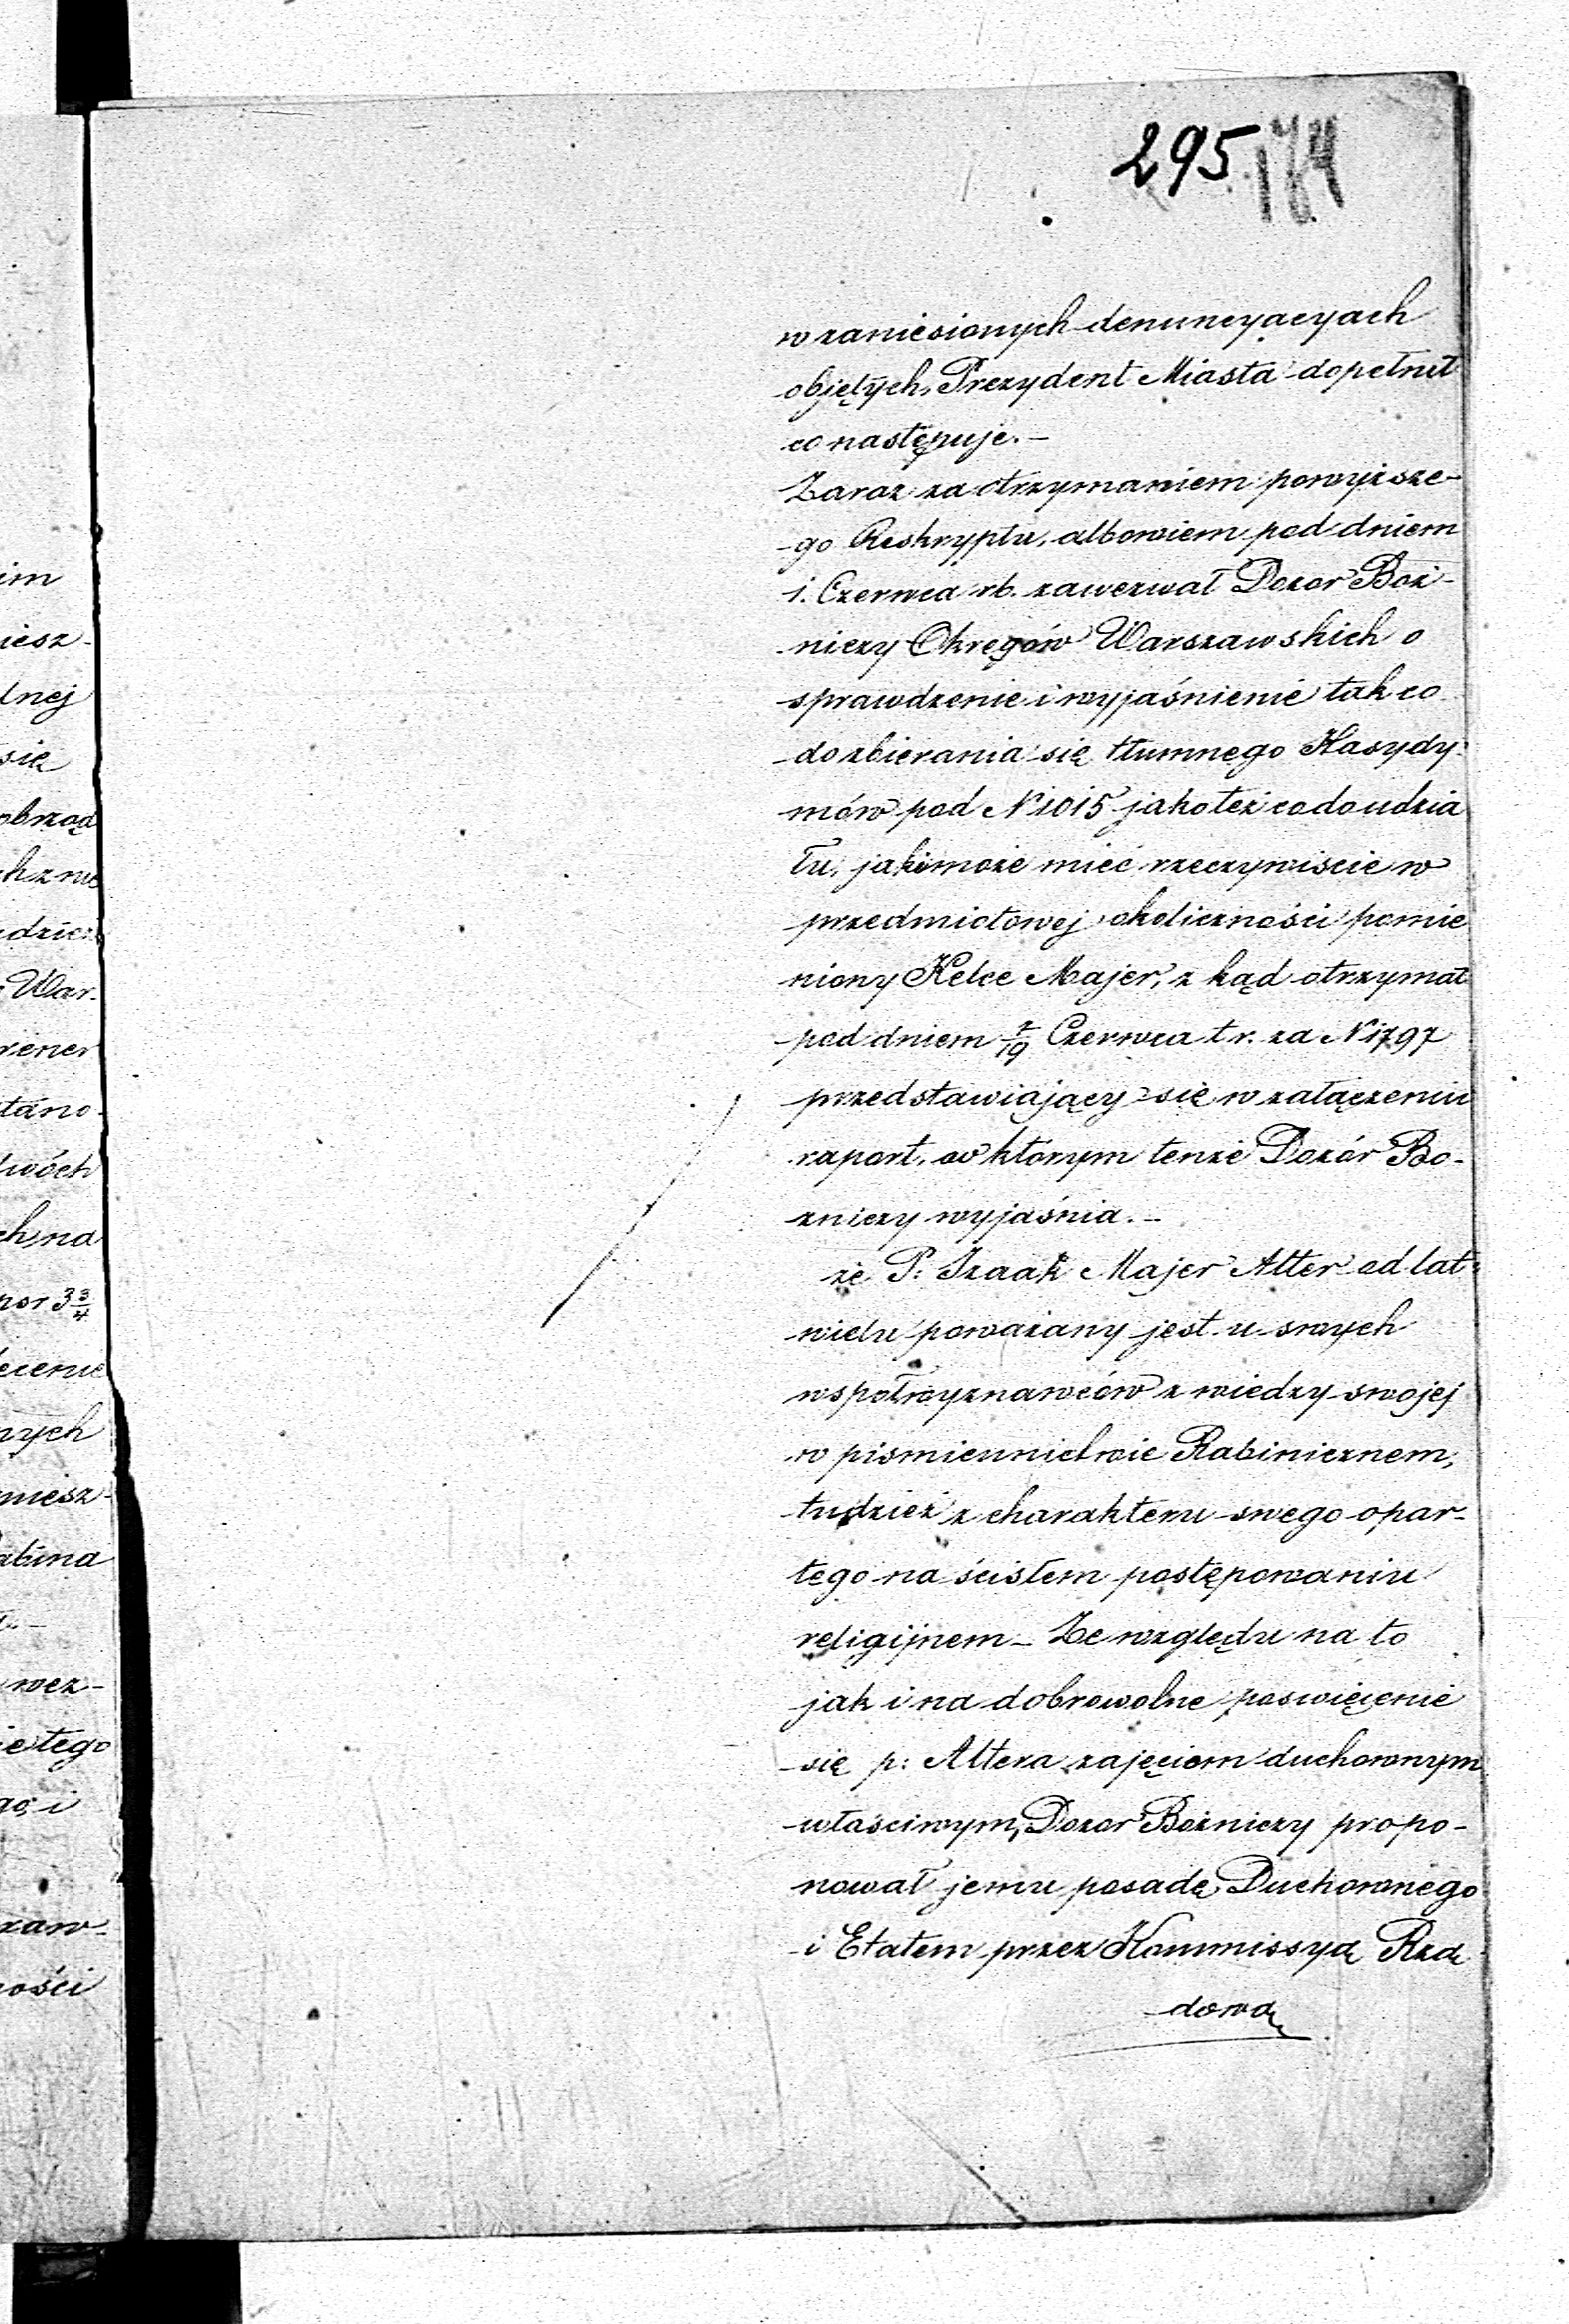 295 174
w zaniesionych denuncyacyach
objętych, Prezydent Miasta dopełnił
co następuje. –
Zaraz za otrzymaniem powyższe-
-go Reskryptu, albowiem pod dniem
1. Czerwca rb. zawezwał Dozor Boż-
niczy Okręgów Warszawskich o
sprawdzenie i wyjaśnienie tak co
do zbierania się tłumnego Hasydy-
mów pod N 1015 jakoteż co do udzia
łu, jaki może mieć rzeczywiscie w
przedmiotowej okoliczności pomie
niony Kelce Majer, z kąd otrzymał
pod dniem 7/19 Czerwca t r. za N 1797
przedstawiający się w załączeniu
raport, w którym tenże Dozór Bo-
zniczy wyjaśnia. –
że P: Izaak Majer Alter od lat
wielu poważany jest u swych
wspołwyznawców z wiedzy swojej
w pismiennictwie Rabinicznem,
tudzież z charakteru swego opar-
tego na ścisłem postępowaniu
religijnem – Ze względu na to
jak i na dobrowolne poswięcenie
się p: Altera zajęciom duchownym
właściwym, Dozor Bożniczy propo-
nował jemu posadę Duchownego
i Etatem przez Kommissyą Rzą
dową
im
iesz-
dnej
się
obrząd
War-
tano-
wóch
ch, na
3 3/4
nych
miesz-
wez-
tego
i
zaw-
ości